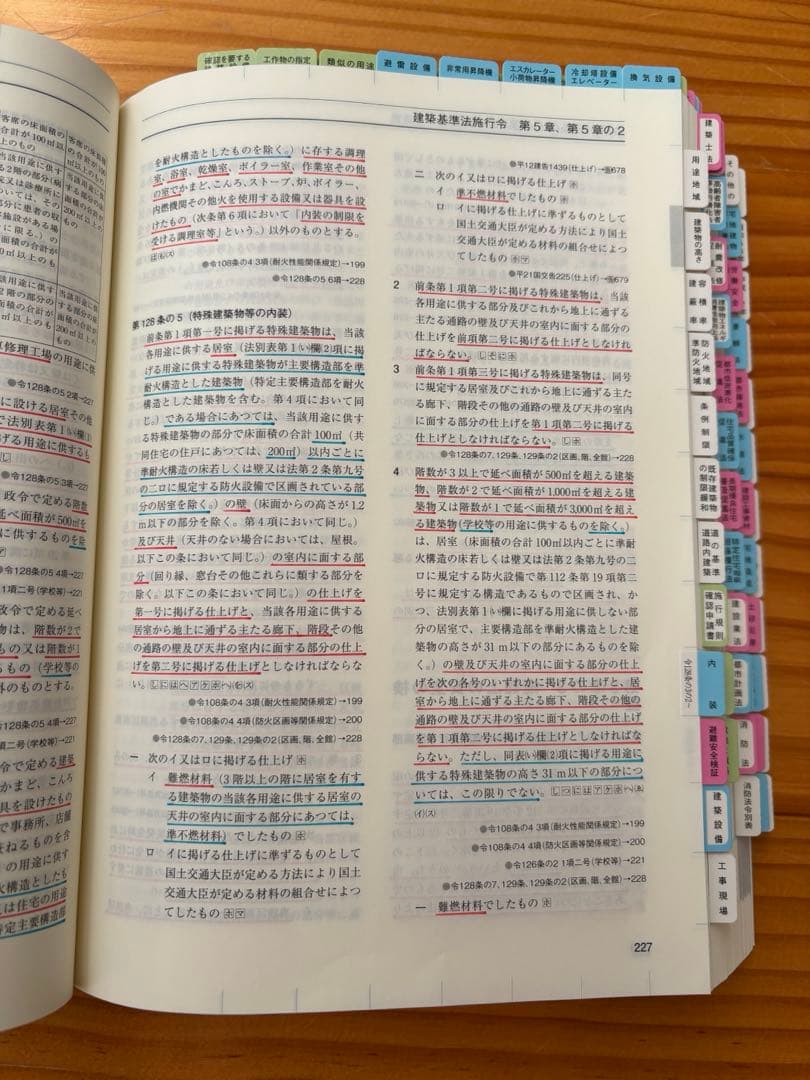 確認を要する
工作物の指定
類似の用途
避雷設備
非常用昇降機
エスカレーター
小荷物昇降機
冷却塔設備
エレベーター
換気設備
建築基準法施行令　第5章、第5章の2
を耐火構造としたものを除く。）に存する調理
室、浴室、乾燥室、ボイラー室、作業室その他
の室でかまど、こんろ、ストーブ、炉、ボイラー、
内燃機関その他火を使用する設備又は器具を設
けたもの（次条第6項において「内装の制限を
受ける調理室等」という。）以外のものとする。
●令108条の4 3項(耐火性能関係規定)→199
●令128条の5 6項→228
第128条の5（特殊建築物等の内装）
前条第1項第一号に掲げる特殊建築物は、当該
各用途に供する居室（法別表第1(い)欄(2)項に掲
げる用途に供する特殊建築物が主要構造部を準
耐火構造とした建築物（特定主要構造部を耐火
構造とした建築物を含む。第4項において同
じ。）である場合にあつては、当該用途に供す
る特殊建築物の部分で床面積の合計100㎡（共
同住宅の住戸にあつては、200㎡）以内ごとに
準耐火構造の床若しくは壁又は法第2条第九号
の二ロに規定する防火設備で区画されている部
分の居室を除く。）の壁（床面からの高さが1.2
m以下の部分を除く。第4項において同じ。）
及び天井（天井のない場合においては、屋根。
以下この条において同じ。）の室内に面する部
分（回り縁、窓台その他これらに類する部分を
除く。以下この条において同じ。）の仕上げを
第一号に掲げる仕上げと、当該各用途に供する
居室から地上に通ずる主たる廊下、階段その他
の通路の壁及び天井の室内に面する部分の仕上
げを第二号に掲げる仕上げとしなければならな
い。
●令108条の4 3項(耐火性能関係規定)→199
●令108条の4 4項(防火区画等関係規定)→200
●令128条の7、129条、129条の2(区画、階、全館)→228
一　次のイ又はロに掲げる仕上げ
イ　難燃材料（3階以上の階に居室を有す
る建築物の当該各用途に供する居室の
天井の室内に面する部分にあつては、
準不燃材料）でしたもの
ロ　イに掲げる仕上げに準ずるものとして
国土交通大臣が定める方法により国土
交通大臣が定める材料の組合せによつ
てしたもの
●平12建告1439(仕上げ)→告678
二　次のイ又はロに掲げる仕上げ
イ　準不燃材料でしたもの
ロ　イに掲げる仕上げに準ずるものとして
国土交通大臣が定める方法により国土
交通大臣が定める材料の組合せによつ
てしたもの
●平21国交告225(仕上げ)→告679
2　前条第1項第二号に掲げる特殊建築物は、当該
各用途に供する部分及びこれから地上に通ずる
主たる通路の壁及び天井の室内に面する部分の
仕上げを前項第二号に掲げる仕上げとしなけれ
ばならない。
3　前条第1項第三号に掲げる特殊建築物は、同号
に規定する居室及びこれから地上に通ずる主た
る廊下、階段その他の通路の壁及び天井の室内
に面する部分の仕上げを第1項第二号に掲げる
仕上げとしなければならない。
●令128条の7、129条、129条の2(区画、階、全館)→228
4　階数が3以上で延べ面積が500㎡を超える建築
物、階数が2で延べ面積が1,000㎡を超える建
築物又は階数が1で延べ面積が3,000㎡を超え
る建築物（学校等の用途に供するものを除く。）
は、居室（床面積の合計100㎡以内ごとに準耐
火構造の床若しくは壁又は法第2条第九号の
二ロに規定する防火設備で第112条第19項第二
号に規定する構造であるもので区画され、か
つ、法別表第1(い)欄に掲げる用途に供しない部
分の居室で、主要構造部を準耐火構造とした建
築物の高さが31m以下の部分にあるものを除
く。）の壁及び天井の室内に面する部分の仕上げ
を次の各号のいずれかに掲げる仕上げと、居室
から地上に通ずる主たる廊下、階段その他の
通路の壁及び天井の室内に面する部分の仕上げ
を第1項第二号に掲げる仕上げとしなければな
らない。ただし、同表(い)欄(2)項に掲げる用途に
供する特殊建築物の高さ31m以下の部分につ
いては、この限りでない。
●令108条の4 3項(耐火性能関係規定)→199
●令108条の4 4項(防火区画等関係規定)→200
●令126条の2 1項二号(学校等)→221
●令128条の7、129条、129条の2(区画、階、全館)→228
一　難燃材料でしたもの
227
建築士法
用途地域
建築物の高さ
容積率
建蔽率
防火地域
準防火地域
条例制限
既存建築物
の制限緩和
道の基準
道路内建築
施行規則
確認申請書
内装
令128条の3の2〜
避難安全検証
建築設備
工事現場
その他の
耐震改修
建設業法
都市計画法
消防法
消防法令別表